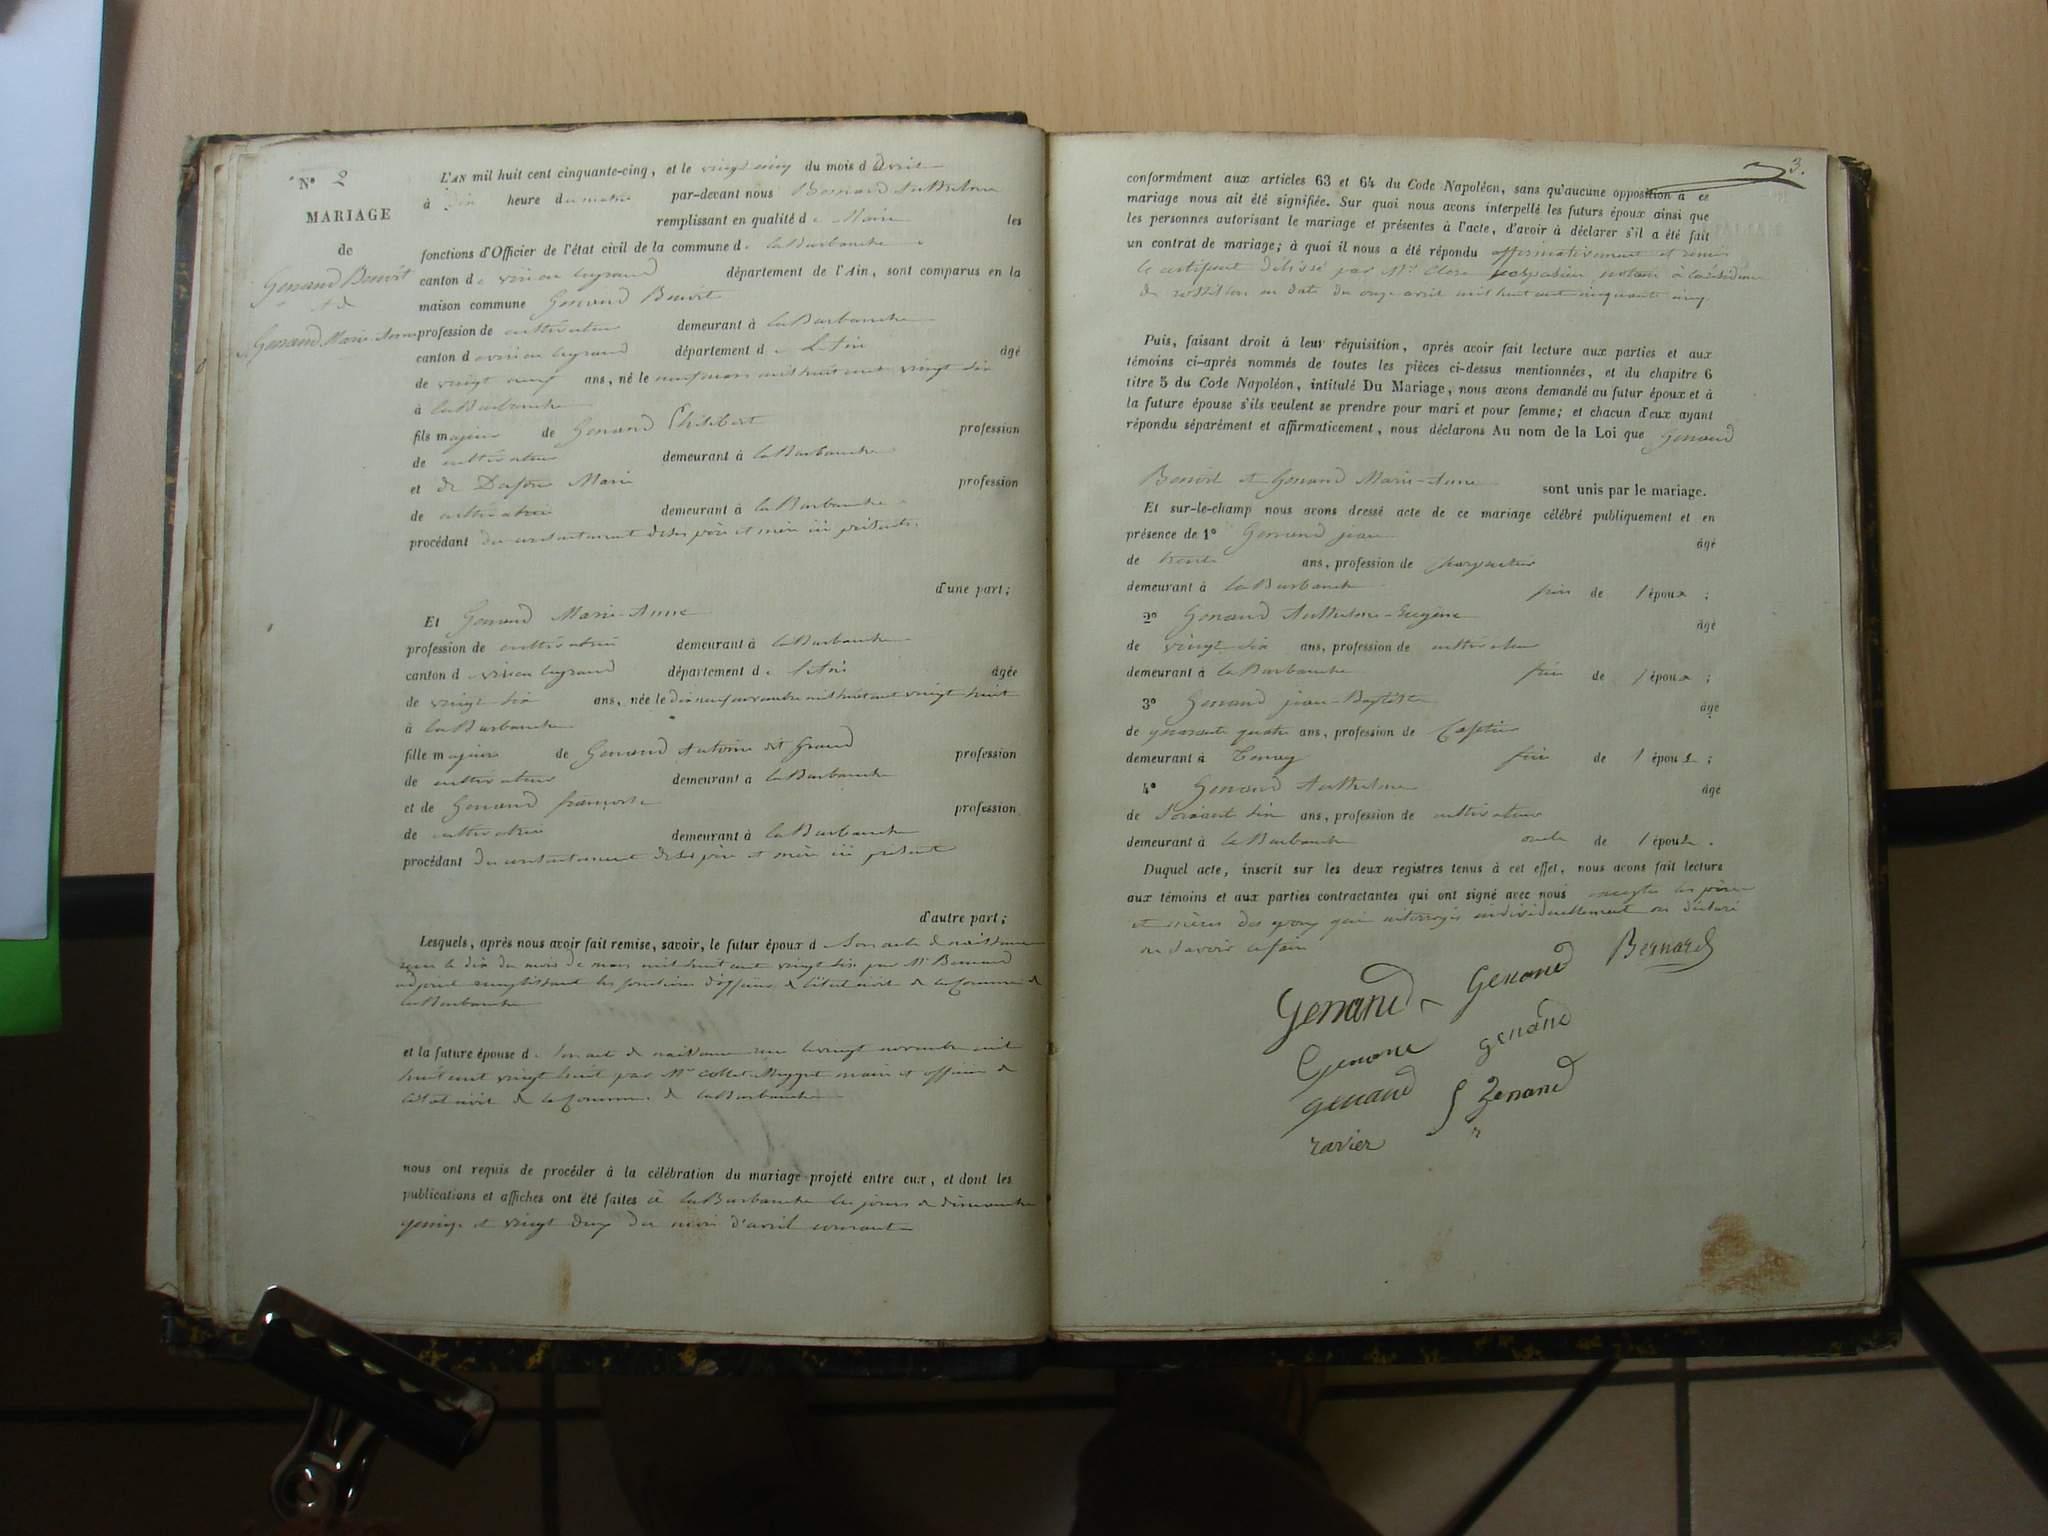 N° 2
MARIAGE
de
Genand Benoit
et de
Genand Marie-Anne
L'AN mil huit cent cinquante-cinq, et le vingt cinq du mois d'avril
à dix heure du matin par-devant nous Bernard Anthelme
remplissant en qualité de Maire les
fonctions d'Officier de l'état civil de la commune de la Burbanche
canton de virieu legrand département de l'Ain, sont comparus en la
maison commune Genand Benoit
profession de cultivateur demeurant à la Burbanche
canton de virieu legrand département de L'Ain âgé
de vingt neuf ans, né le neuf mars mil huit cent vingt six
à la Burbanche
fils majeur de Genand Philibert profession
de cultivateur demeurant à la Burbanche
et de Marie profession
de cultivatrice demeurant à la Burbanche
procédant du consentement de ses père et mère ici présents.
d'une part;
Et Genand Marie-Anne
profession de cultivatrice demeurant à la Burbanche
canton de virieu legrand département de L'Ain âgée
de vingt six ans, née le dix neuf novembre mil huit cent vingt huit
à la Burbanche
fille majeure de Genand Antoine dit Grand profession
de cultivateur demeurant à la Burbanche
et de Genand françoise profession
de cultivatrice demeurant à la Burbanche
procédant du consentement de ses père et mère ici présents
d'autre part;
Lesquels, après nous avoir fait remise, savoir, le futur époux de Son acte de naissance
reçu le dix du mois de mars mil huit cent vingt six par Mr Bernard
adjoint remplissant les fonctions d'officier de l'état civil de la Commune de
la Burbanche
et la future épouse de Son acte de naissance reçu le vingt novembre mil
huit cent vingt huit par Mr Collet maire et officier de
l'état civil de la Commune de la Burbanche
nous ont requis de procéder à la célébration du mariage projeté entre eux, et dont les
publications et affiches ont été faites à la Burbanche les jours de dimanche
quinze et vingt deux du mois d'avril courant
3.
conformément aux articles 63 et 64 du Code Napoléon, sans qu'aucune opposition à ce
mariage nous ait été signifiée. Sur quoi nous avons interpellé les futurs époux ainsi que
les personnes autorisant le mariage et présentes à l'acte, d'avoir à déclarer s'il a été fait
un contrat de mariage; à quoi il nous a été répondu affirmativement et remis
le certificat délivré par Mr notaire à la résidence
de rossillon en date du onze avril mil huit cent cinquante cinq
Puis, faisant droit à leur réquisition, après avoir fait lecture aux parties et aux
témoins ci-après nommés de toutes les pièces ci-dessus mentionnées, et du chapitre 6
titre 5 du Code Napoléon, intitulé Du Mariage, nous avons demandé au futur époux et à
la future épouse s'ils veulent se prendre pour mari et pour femme; et chacun d'eux ayant
répondu séparément et affirmativement, nous déclarons Au nom de la Loi que Genand
Benoit et Genand Marie-Anne sont unis par le mariage.
Et sur-le-champ nous avons dressé acte de ce mariage célébré publiquement et en
présence de 1° Genand jean âgé
de trente ans, profession de charpentier
demeurant à la Burbanche frère de l'époux;
2° Genand Anthelme-Eugène âgé
de vingt six ans, profession de cultivateur
demeurant à la Burbanche frère de l'époux;
3° Genand jean-Baptiste âgé
de quarante quatre ans, profession de
demeurant à Tenay frère de l'épouse;
4° Genand Anthelme âgé
de Soixante six ans, profession de cultivateur
demeurant à la Burbanche oncle de l'épouse.
Duquel acte, inscrit sur les deux registres tenus à cet effet, nous avons fait lecture
aux témoins et aux parties contractantes qui ont signé avec nous excepté les pères
et mères des époux qui interrogés individuellement ont déclaré
ne Savoir le faire
Genand Genand Bernard
Genand genand
genand Zenand
ravier